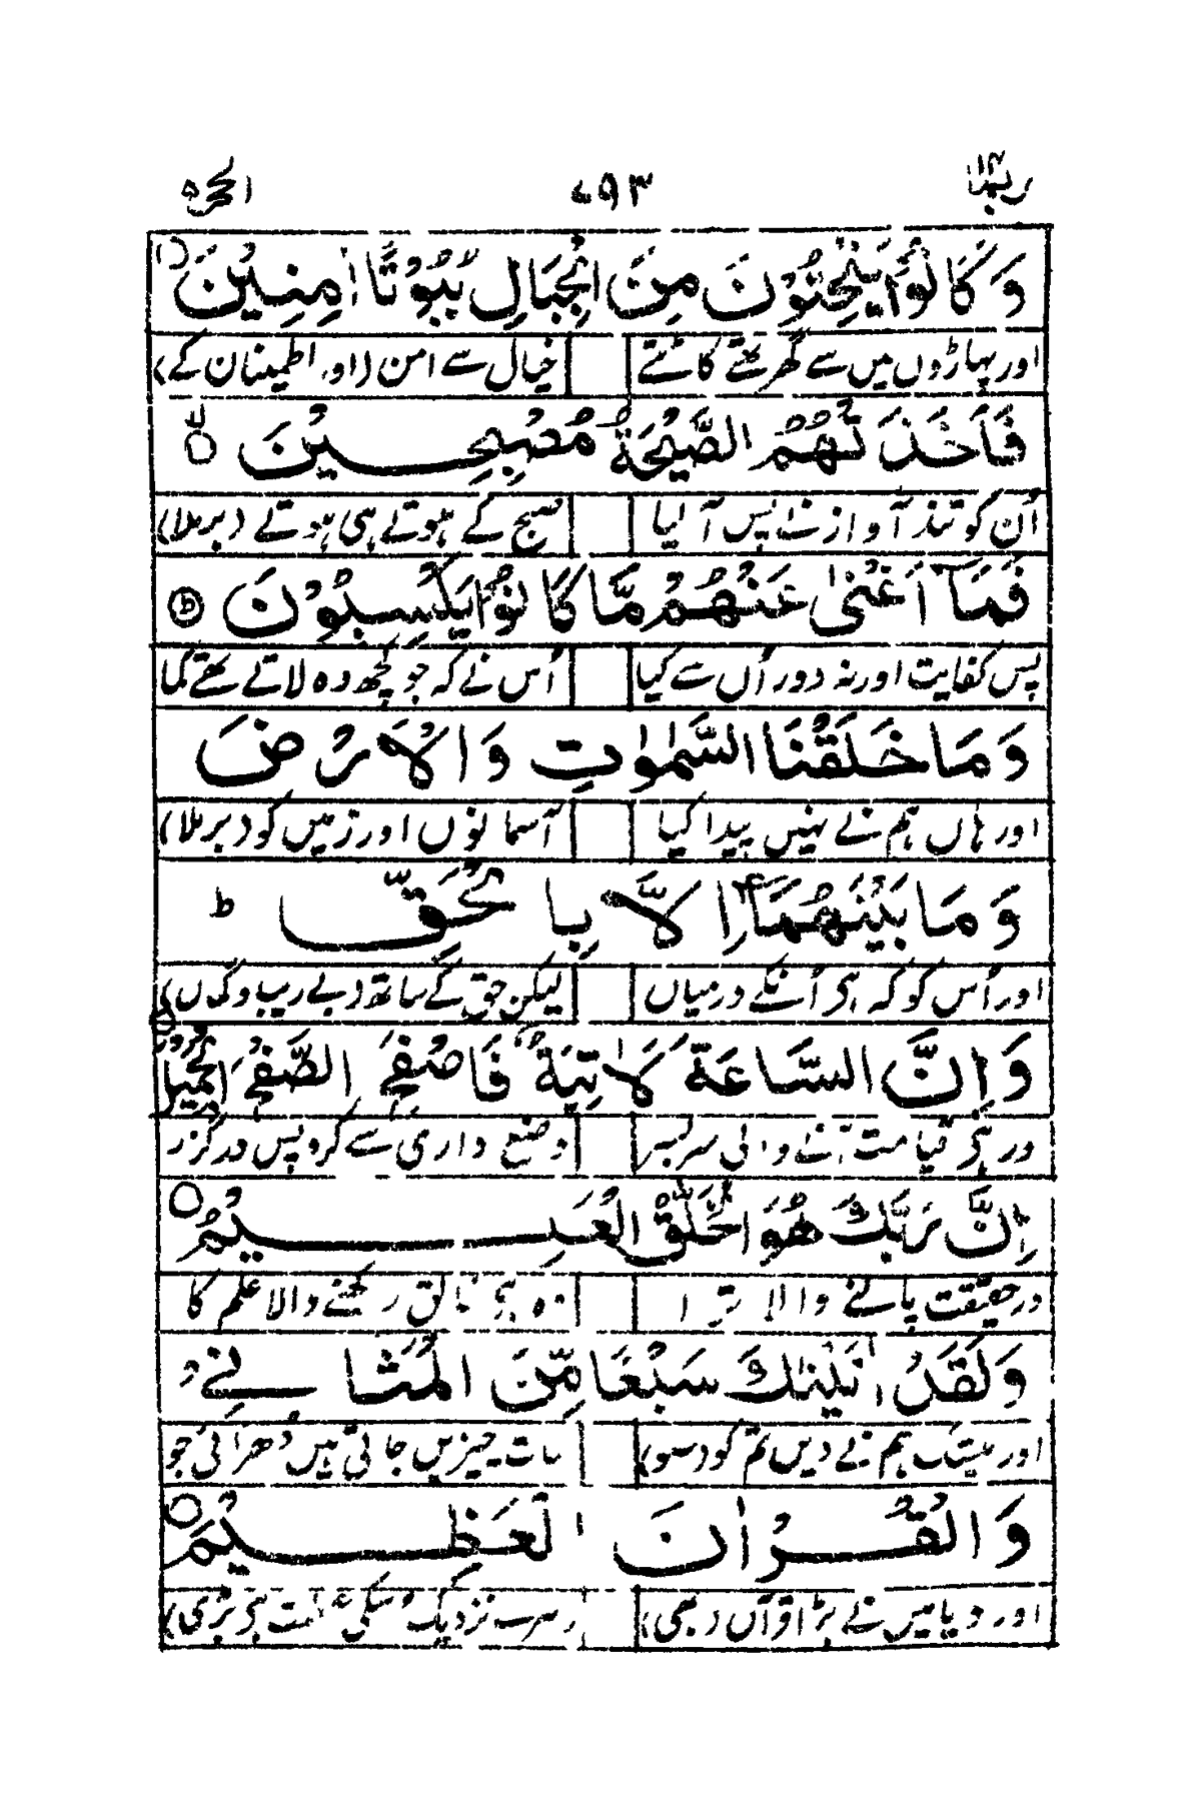 ربما ۱۴ ۷۹۳ الحجر ۱۵
وَكَانُوْا يَنْحِتُوْنَ مِنَ الْجِبَالِ بُيُوْتًا اٰمِنِيْنَ
اور پہاڑوں میں سے گھر تھے کاٹتے خیال سے امن (اور اطمینان کے)
فَاَخَذَتْهُمُ الصَّيْحَةُ مُصْبِحِيْنَ
اُن کو تند آواز نے پس آ لیا صبح کے ہوتے ہی ہوتے (برملا)
فَمَآ اَغْنٰى عَنْهُمْ مَّا كَانُوْا يَكْسِبُوْنَ ط
پس کفایت اور نہ دور اُں سے کیا اُس نے کہ جو کچھ وہ لاتے تھے کما
وَمَا خَلَقْنَا السَّمٰوٰتِ وَالْاَرْضَ
اور ہاں ہم نے نہیں پیدا کیا آسمانوں اور زمیں کو (برملا)
وَمَا بَيْنَهُمَآ اِلَّا بِالْحَقِّ ط
اور اُس کو کہ ہے اُنکے درمیاں لیکن حق کے ساتھ (بے ریب و گماں)
وَاِنَّ السَّاعَةَ لَاٰتِيَةٌ فَاصْفَحِ الصَّفْحَ الْجَمِيْلَ
ور ہے قیامت آنے والی سربسر وضع داری سے کرو پس درگزر
اِنَّ رَبَّكَ هُوَ الْخَلّٰقُ الْعَلِيْمُ
درحقیقت پالنے والا وہ ہے خالق رکھنے والا علم کا
وَلَقَدْ اٰتَيْنٰكَ سَبْعًا مِّنَ الْمَثَانِيْ
اور بیشک ہم نے دیں تم کو (سنو) سات چیزیں جاتی ہیں دُھرائی جو
وَالْقُرْاٰنَ الْعَظِيْمَ
اور دیا میں نے بڑا قرآں (بھی) نزدیک ہے بڑی)